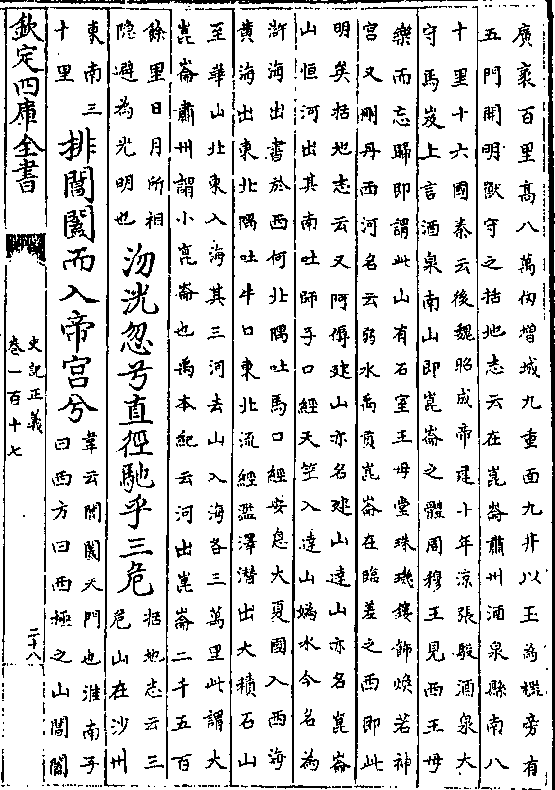 廣袤百里髙八萬仭增城九重面九井以玉為檻旁有
五門開明獸守之括地志云在崑崙肅州酒泉縣南八
十里十六國秦云後魏昭成帝建十年涼張駿酒泉大
守馬岌上言酒泉南山即崑崙之體周穆王見西王母
樂而忘歸即謂此山有石室王母堂珠璣鏤飾煥若神
宫又刪丹西河名云弱水禹貢崑崙在臨羌之西即此
明矣括地志云又阿傉達山亦名建山達山亦名崑崙
山恒河出其南吐師子口經天竺入達山嬀水今名為
滸海出書於西何北隅吐馬口經安息大夏國入西海
黄海出東北隅吐牛口東北流經濫澤潛出大積石山
至華山北東入海其三河去山入海各三萬里此謂大
崑崙肅州謂小崑崙也禹本紀云河出崑崙二千五百
餘里日月所相
隠避為光明也
沕洸忽兮直徑馳乎三危
括地志云三
危山在沙州
東南三
十里
排閶闔而入帝宫兮
韋云閶闔天門也淮南子
曰西方曰西極之山閶闔
欽定四庫全書
史記正義
卷一百十七
二十八